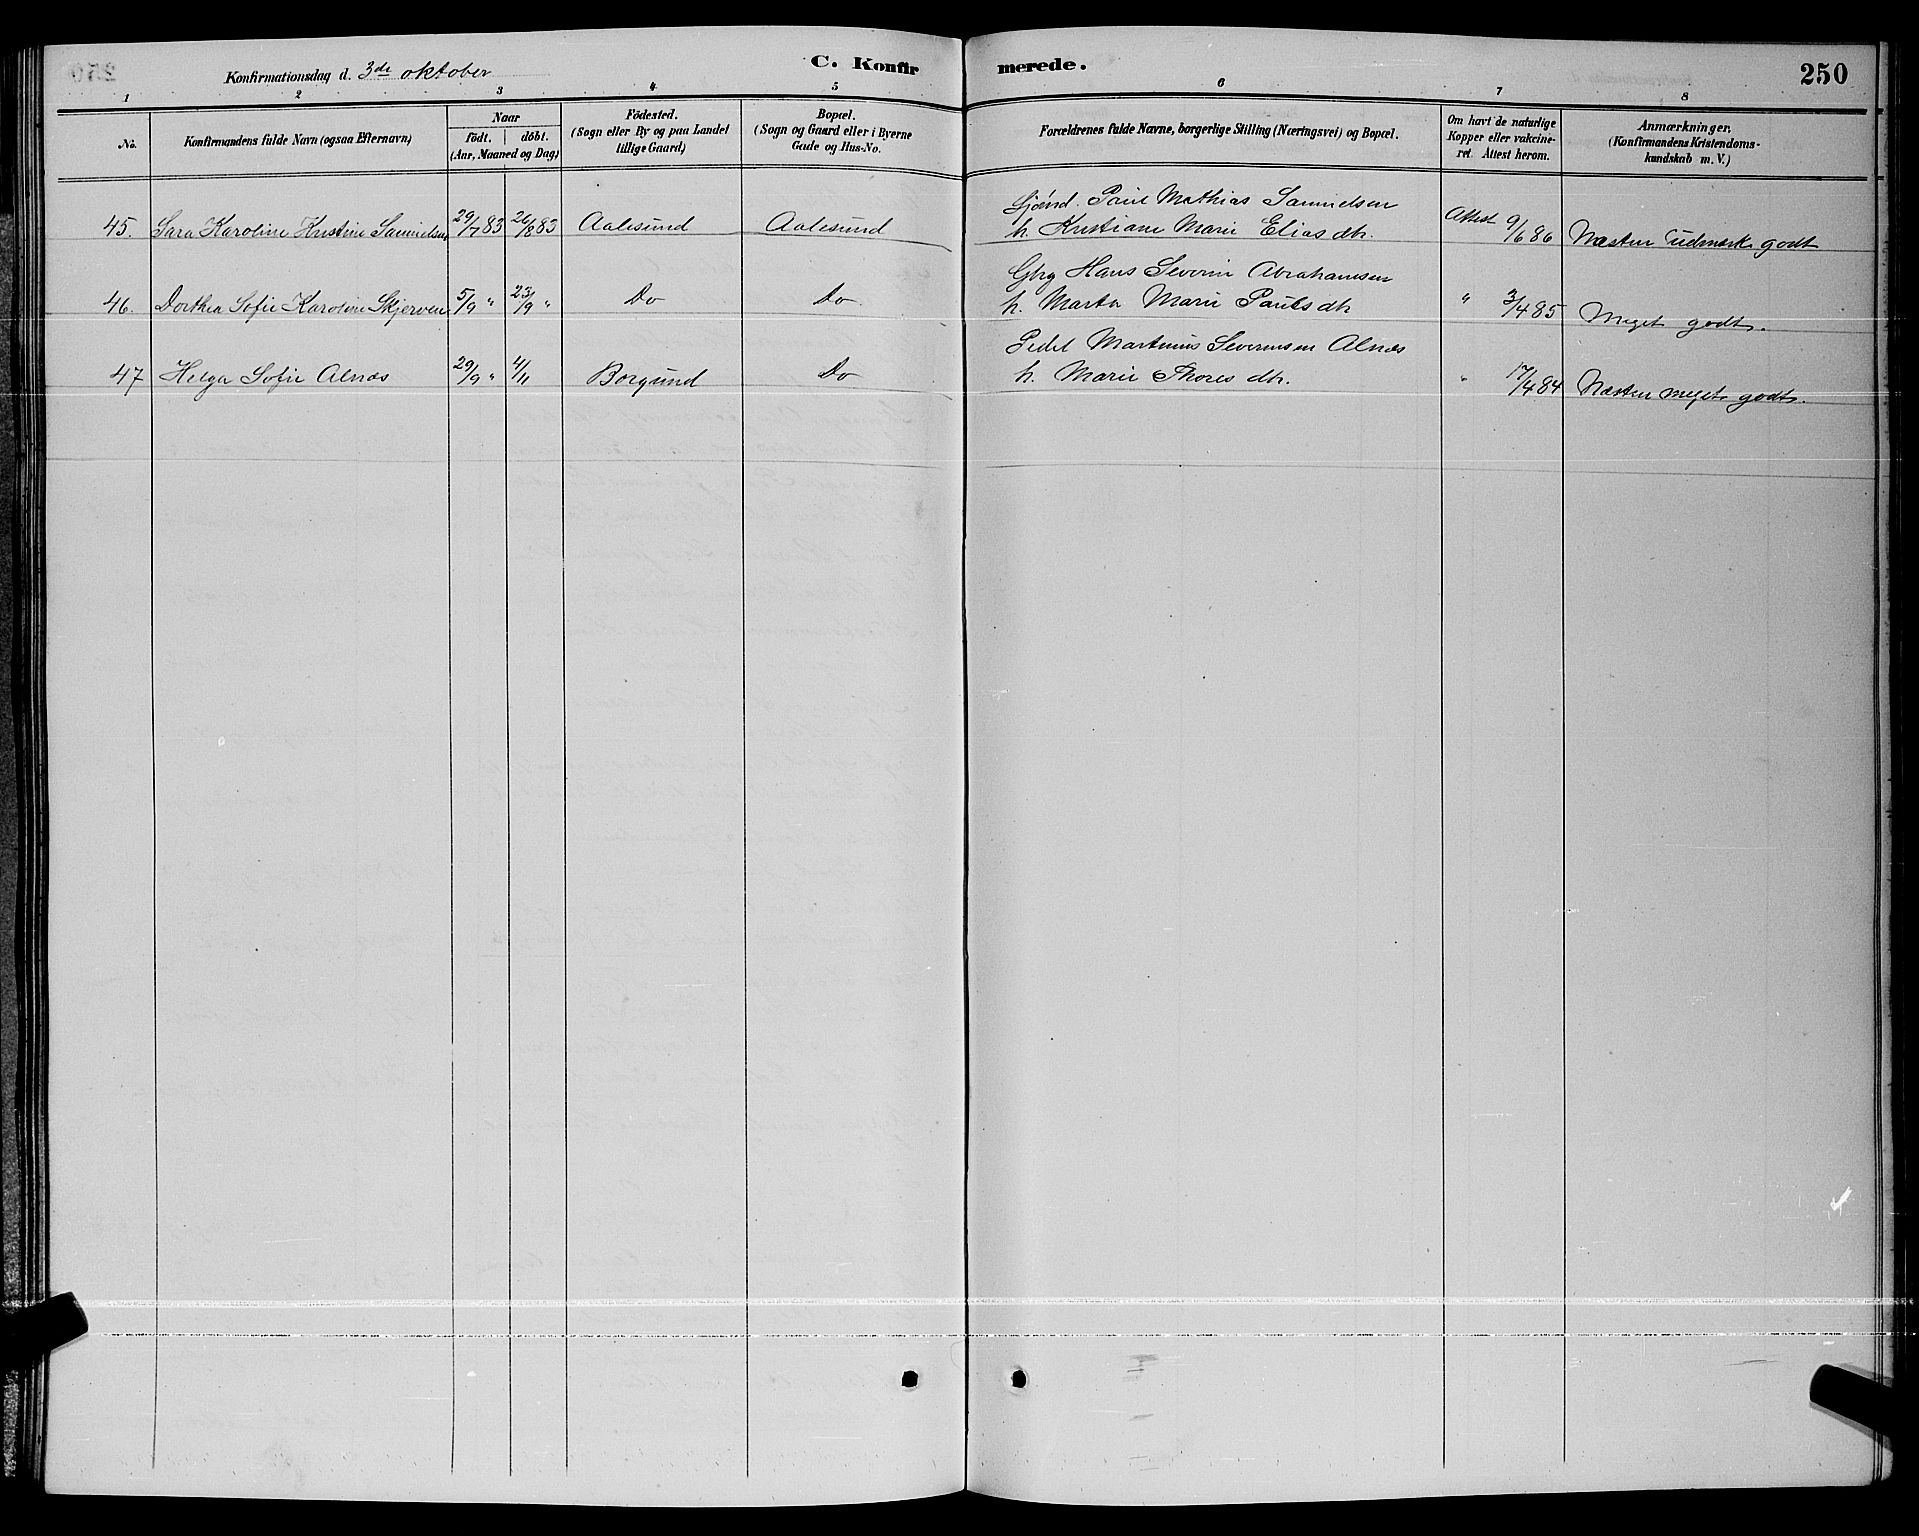 Konfirmationsdag d. 3de oktober
C. Konfirmerede.
250
1 2 3 4 5 6 7 8
No.
Konfirmandens fulde Navn (ogsaa Efternavn)
Naar
födt. döbt.
(Aar, Maaned og Dag)
Födested.
(Sogn eller By og paa Landet
tillige Gaard)
Bopæl.
(Sogn og Gaard eller i Byerne
Gade og Hus-No.
Forældrenes fulde Navne, borgerlige Stilling (Næringsvei) og Bopæl.
Om havt de naturlige
Kopper eller vakcine-
ret. Attest herom.
Anmærkninger.
(Konfirmandens Kristendoms-
kundskab m. V.)
Paul Mathias Samuelsen
45. Sara Karoline Kristine Samuelsen 29/7 83 26/8 83 Aalesund Aalesund h. Kristiane Marie Elias dtr. Attest 9/6 86 Næsten udmærk. godt
Hans Severin Abrahamsen
46. Dorthea Sofie Karoline Skjerven 5/9 " 23/9 " Do Do h. Marta Marie Pauls dtr " 3/4 85 Meget godt.
Martinus Severinsen Alnæs
47 Helga Sofie Alnæs 29/9 " 4/11 Borgund Do h. Marie Thores dtr. " 17/4 84 Næsten meget godt.